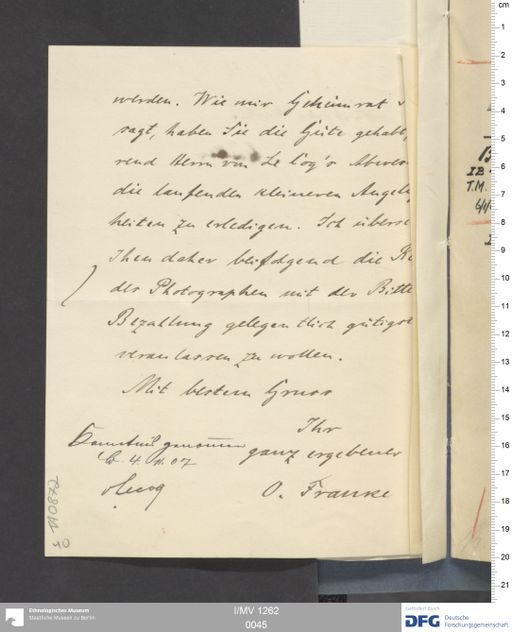 werden. Wie mir Geheimrat
sagt, haben Sie die Güte gehabt,
rend Herrn von Le Coq's Abwes
die laufenden kleineren Angele
heiten zu erledigen. Ich überse
Ihnen daher beifolgend die Re
des Photographen mit der Bitte
Bezahlung gelegentlich gütigst
veranlassen zu wollen.
Mit bestem Gruss
Ihr
ganz ergebener
O. Franke
Kenntnis genommen
4. 07
Lecoq
IB
T.M.
cm
1
2
3
4
5
6
7
8
9
10
11
12
13
14
15
16
17
18
19
20
21
Ethnologisches Museum
Staatliche Museen zu Berlin
I/MV 1262
0045
Gefördert durch
DFG Deutsche
Forschungsgemeinschaft